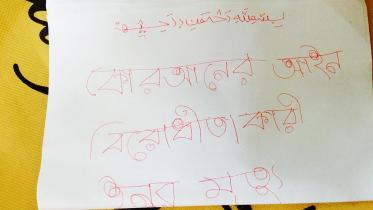 بسم الله الرحمن الرحيم
কোরআনের আইন
বিরোধীতা কারী
মৃত্যু